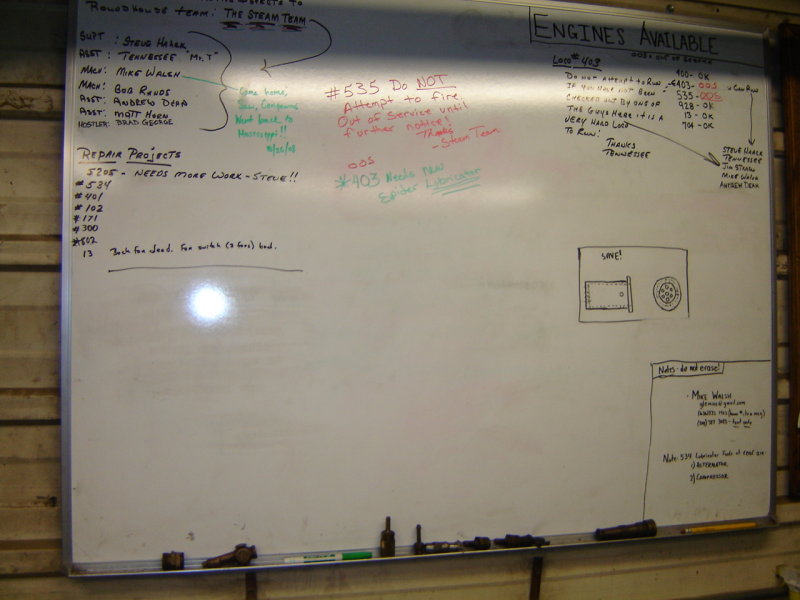 ROUNDHOUSE TEAM: THE STEAM TEAM
SUPT: STEVE HAACK
ASST: TENNESSEE "MR. T"
MACH: MIKE WALSH
MACH: BOB RANDS
ASST: ANDREW DEAR
ASST: MATT HORN
HOSTLER: BRAD GEORGE
Come home,
Went back to
Mississippi!!
#535 Do NOT
Attempt to fire.
Out of Service until
further notice!
Thanks
-Steam Team
OOS
#403 Needs new
Spider Lubricator
REPAIR PROJECTS
5205 - NEEDS MORE WORK - STEVE!!
#534
#401
#102
#171
#300
#802
13 Back fan dead. Fan switch (2 fans) bad.
ENGINES AVAILABLE
OOS = OUT OF SERVICE
LOCO #403
DO NOT ATTEMPT TO RUN
IF YOU HAVE NOT BEEN
CHECKED OUT BY ONE OF
THE GUYS HERE IT IS A
VERY HARD LOCO
TO RUN!
THANKS
TENNESSEE
400 - OK
403 - OOS
535 - OOS
928 - OK
13 - OK
704 - OK
CAN RUN
STEVE HAACK
TENNESSEE
JIM STRAW
MIKE WALSH
ANDREW DEAR
SAVE!
Notes - do not erase!
MIKE WALSH
Note: 534 Lubricator
1) ALTERNATOR
2) COMPRESSOR